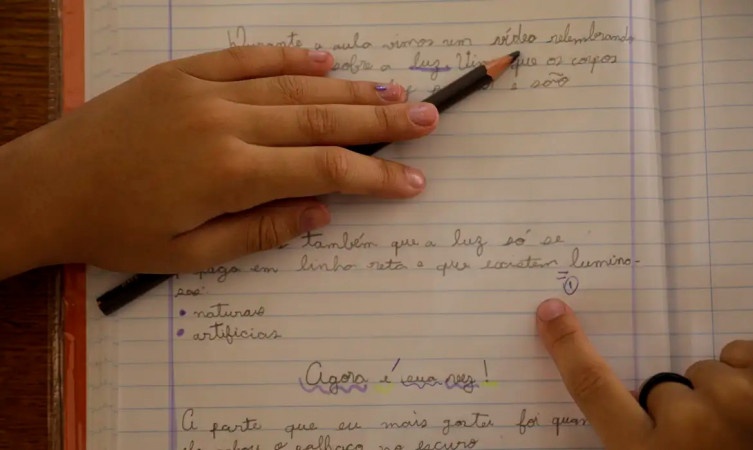 Durante a aula vimos um vídeo relembrando
sobre a luz. que os corpos
e são
também que a luz só se
em linha reta e que existem lumino-
sos:
①
• naturais
• artificias
Agora é sua vez!
A parte que eu mais gostei foi
o palhaço no escuro